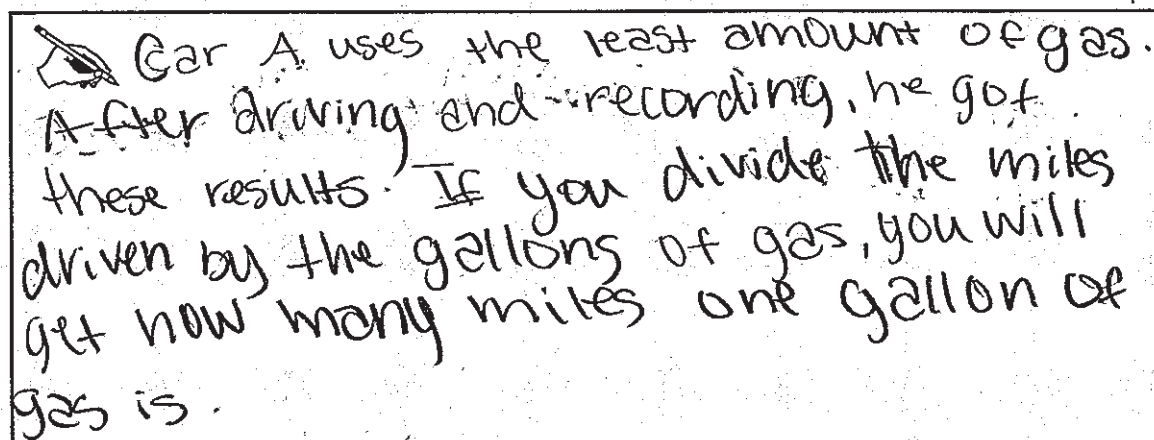 Car A uses the least amount of gas.
After driving and recording, he got
these results. If you divide the miles
driven by the gallons of gas, you will
get how many miles one gallon of
gas is.